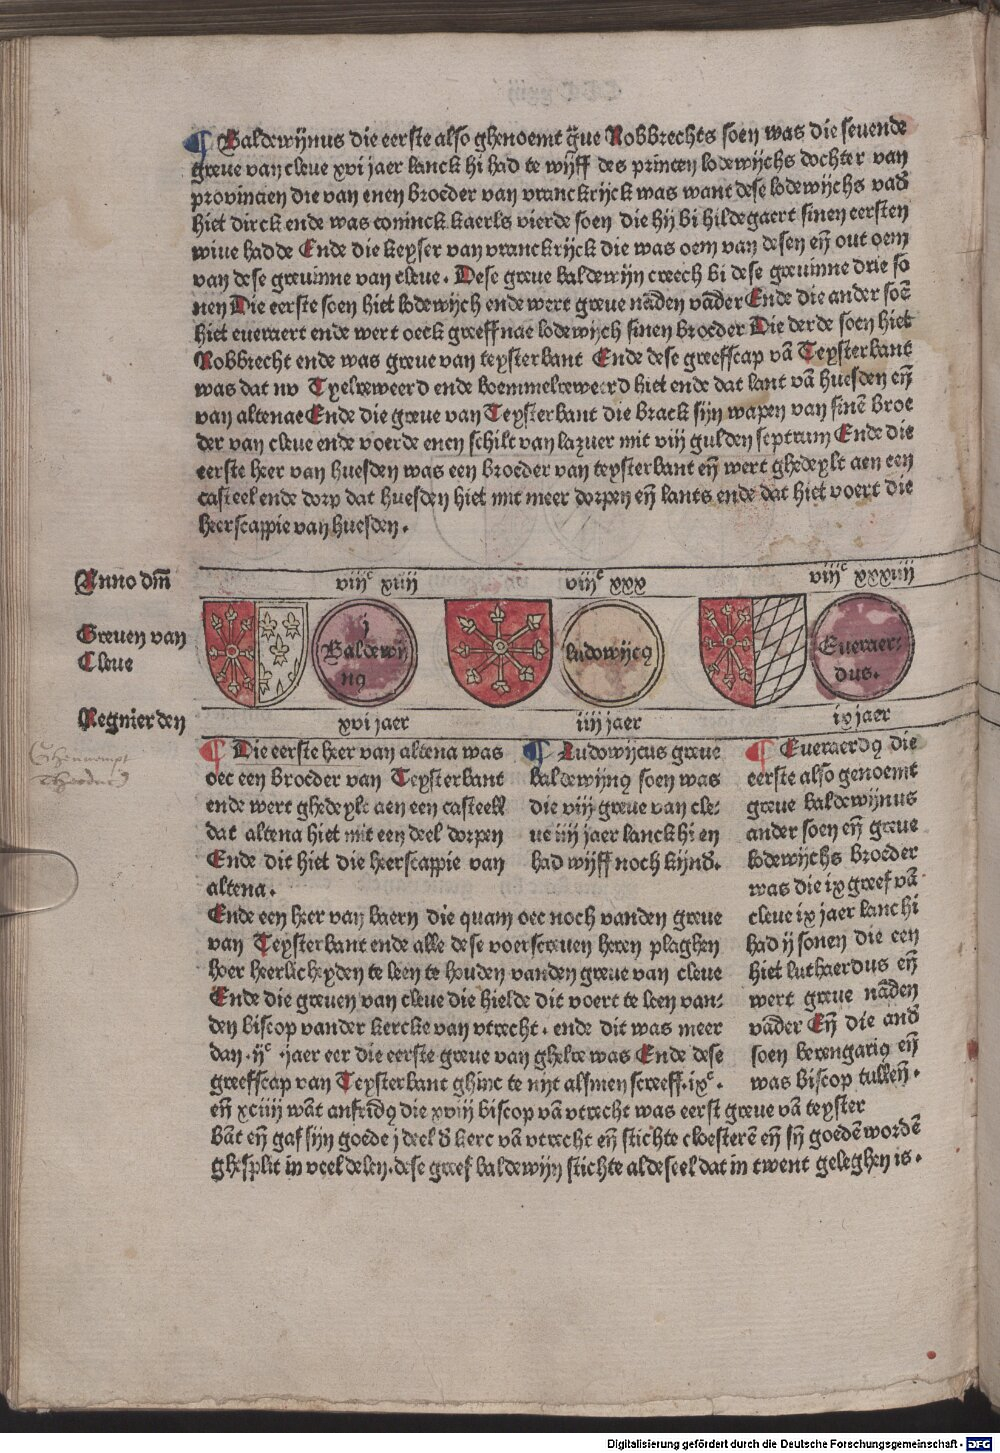 ¶ Baldewijnus die eerste also ghenoemt g̃ue Robbrechts soen was die seuende
greue van cleue xvi jaer lanck hi had te wijff des princen lodewijchs dochter van
prouincien die van enen broeder van vranckrijck was want dese lodewijchs vad̃
hiet dirck ende was coninck kaerls vierde soen die hij bi hildegaert sinen eersten
wiue hadde Ende die keyser van vranckrijck die was oem van desen eñ out oem
van dese greuinne van cleue. Dese greue baldewijn creech bi dese greuinne drie so
nen Die eerste soen hiet lodewijch ende wert greue nadẽ vader Ende die ander soẽ
hiet eueraert ende wert oeck greeff nae lodewijch sinen broeder Die derde soen hiet
Robbrecht ende was greue van teysterbant Ende dese greefscap vã Teysterbant
was dat nv Tyelreweerd ende boemmelreweerd hiet ende dat lant vã huesden eñ
van altenae Ende die greue van Teysterbant die brack sijn wapen van sinẽ broe
der van cleue ende voerde enen schilt van lazuer mit viij gulden septrum Ende die
eerste heer van huesden was een broeder van teysterbant eñ wert ghedeylt aen een
casteel ende dorp dat huesden hiet mit meer dorpen eñ lants ende dat hiet voert die
heerscappie van huesden.
Anno dm̃ viijᶜ xiiij viijᶜ xxx viijᶜ xxxiiij
Greuen van
Cleue
j
Baldewij
nꝯ
ludowijcꝯ
Eueraer-
dus.
Regnierden xvi jaer iiij jaer ix jaer
¶ Die eerste heer van altena was
oec een broeder van Teysterbant
ende wert ghedeylt aen een casteell
dat altena hiet mit een deel dorpen
Ende dit hiet die heerscappie van
altena.
¶ Ludowijcus greue
baldewijnꝯ soen was
die viij greue van cle-
ue iiij jaer lanck hi en
had wijff noch kijnd̃.
Ende een heer van baern die quam oec noch vanden greue
van Teysterbant ende alle dese voerscreuen heren plaghen
hoer heerlicheyden te leen te houden vanden greue van cleue
Ende die greuen van cleue die hielde dit voert te leen van-
den biscop vander kercke van vtrecht. ende dit was meer
dan .ijᶜ .jaer eer die eerste greue van ghelre was Ende dese
greefscap van Teysterbant ghinc te nijt alsmen screeff.ixᶜ.
¶ Eueraerdꝯ die
eerste also genoemt
greue baldewijnus
ander soen eñ greue
lodewijchs broeder
was die ix greef vã
cleue ix jaer lanc hi
had ij sonen die een
hiet luthaerdus eñ
wert greue nãden
vãder Eñ die and̃
soen berengariꝯ eñ
was biscop tullẽñ.
eñ xciiij wãt anfridꝯ die xviij biscop vã vtrecht was eerst greue vã teyster
bãt eñ gaf sijn goede j deel d̃ kerc vã vtrecht eñ stichte cloesterẽ eñ sỹ goedẽ wordẽ
ghesplit in veel delen. dese greef baldewijn stichte aldeseel dat in twent geleghen is.
Digitalisierung gefördert durch die Deutsche Forschungsgemeinschaft - DFG